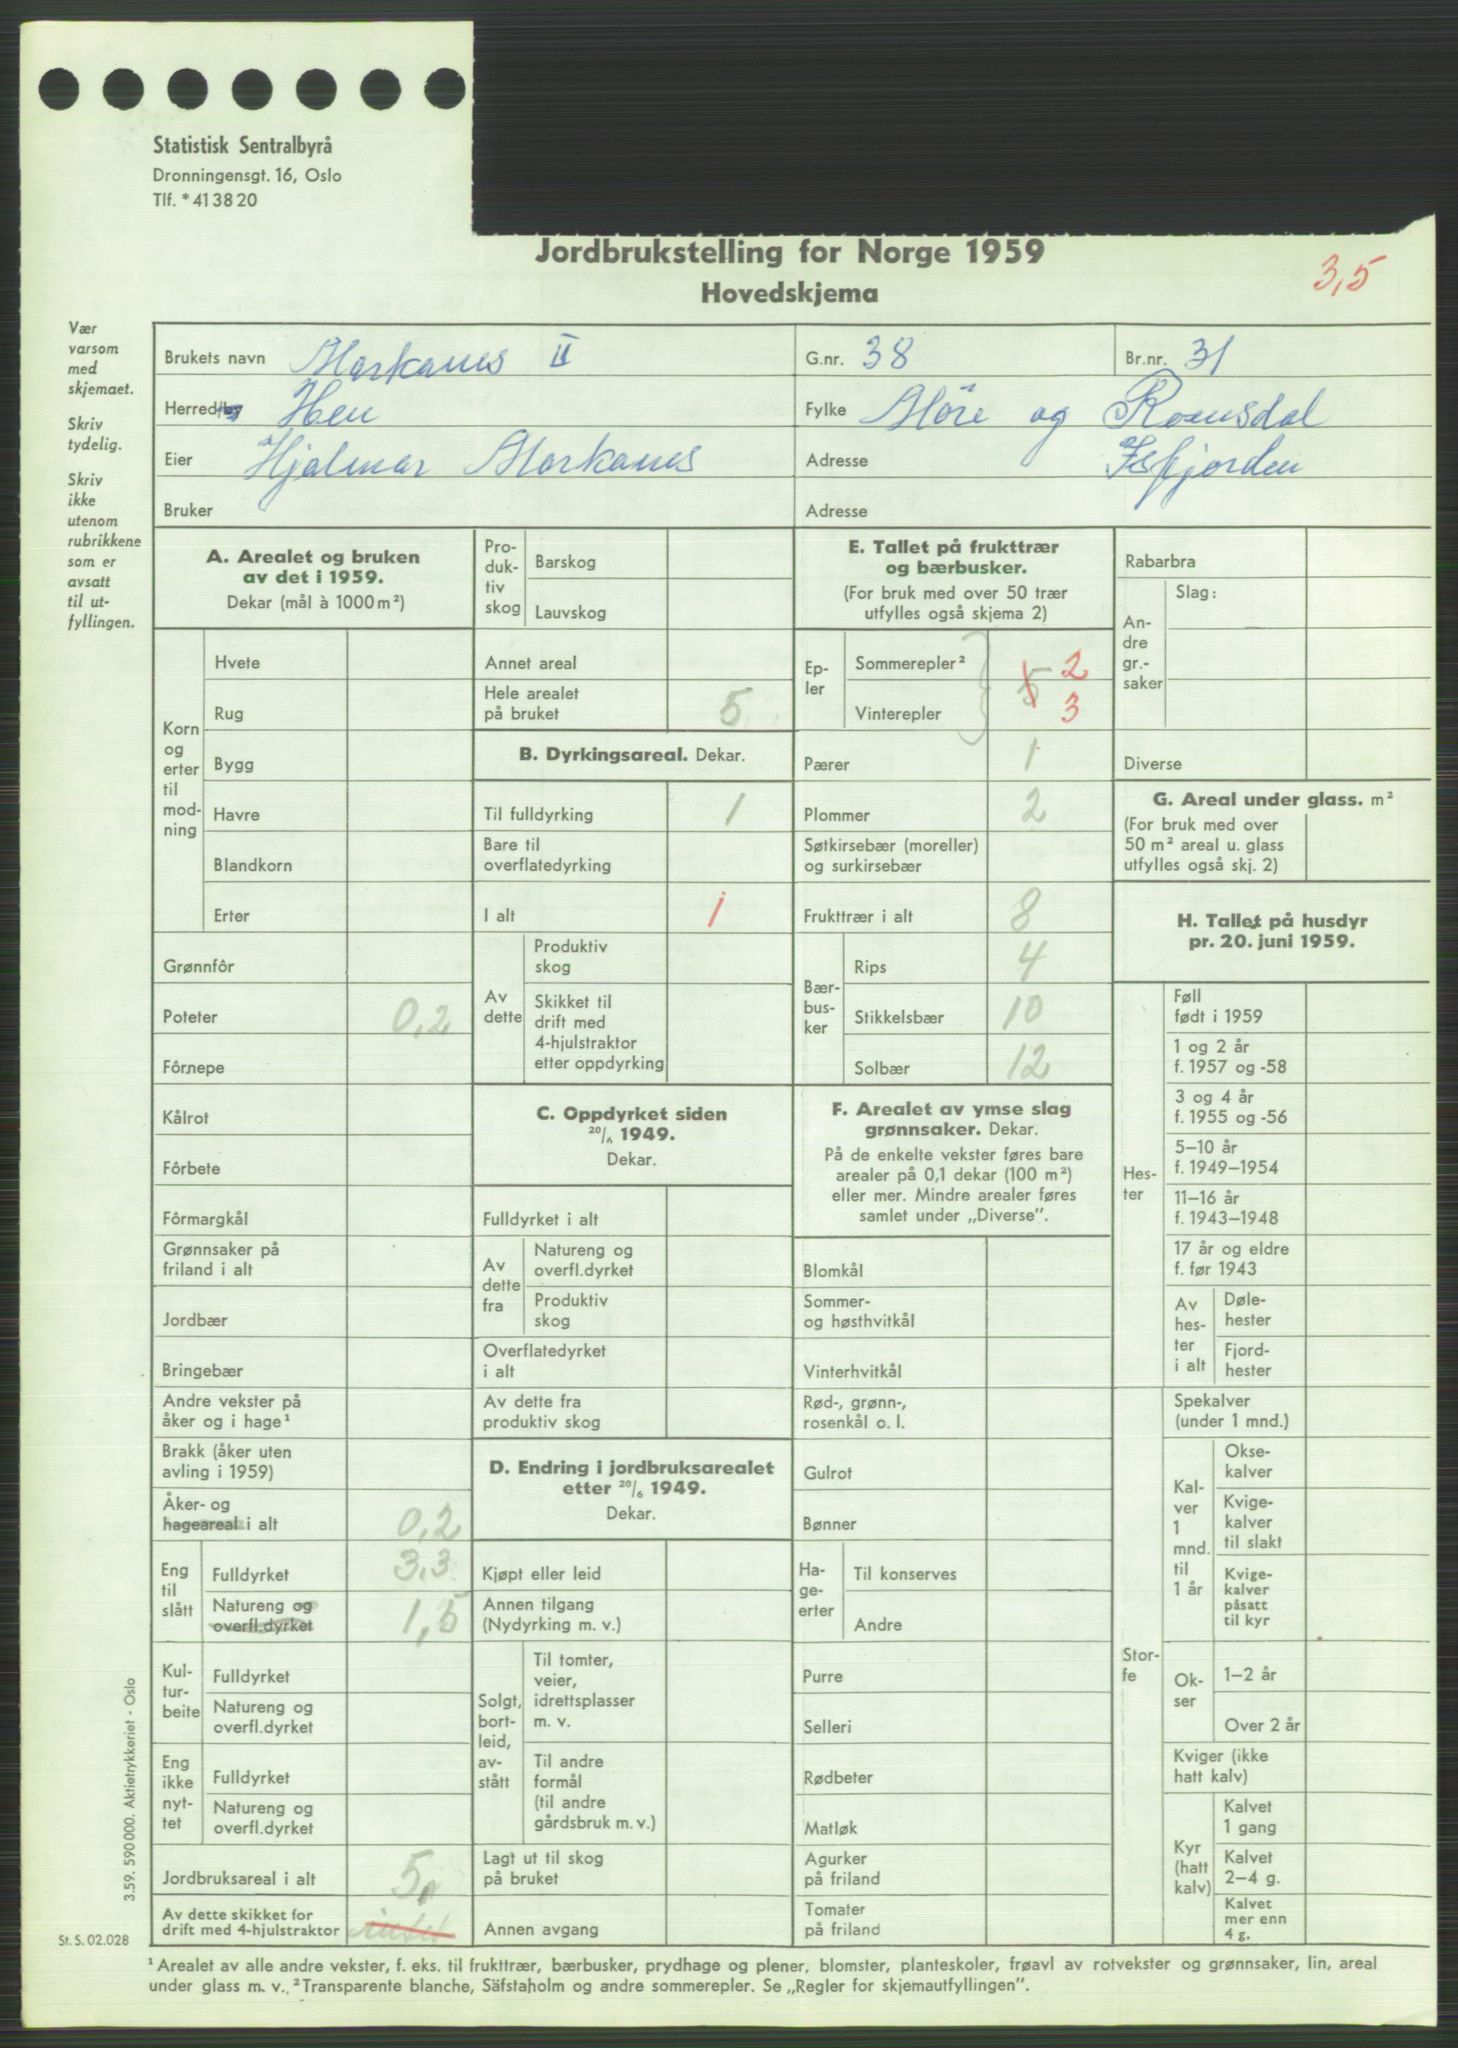 Statistisk Sentralbyrå
Dronningensgt. 16, Oslo
Tlf. * 41 38 20
Jordbrukstelling for Norge 1959
Hovedskjema
3,5
Vær
varsom
med
skjemaet.
Skriv
tydelig.
Skriv
ikke
utenom
rubrikkene
som er
avsatt
til ut-
fyllingen.
Brukets navn Morkanes II G.nr. 38 Br.nr. 31
Herred/by Hen Fylke Møre og Romsdal
Eier Hjalmar Morkanes Adresse Isfjorden
Bruker Adresse
A. Arealet og bruken
av det i 1959.
Dekar (mål à 1000 m²)
Korn
og
erter
til
mod-
ning
Hvete
Rug
Bygg
Havre
Blandkorn
Erter
Grønnfôr
Poteter 0,2
Fôrnepe
Kålrot
Fôrbete
Fôrmargkål
Grønnsaker på
friland i alt
Jordbær
Bringebær
Andre vekster på
åker og i hage¹
Brakk (åker uten
avling i 1959)
Åker- og
hageareal i alt 0,2
Eng
til
slått
Fulldyrket 3,3
Natureng og
overfl.dyrket 1,5
Kul-
tur-
beite
Fulldyrket
Natureng og
overfl.dyrket
Eng
ikke
nyt-
tet
Fulldyrket
Natureng og
overfl.dyrket
Jordbruksareal i alt 5,
Av dette skikket for
drift med 4-hjulstraktor intet
Pro-
duk-
tiv
skog
Barskog
Lauvskog
Annet areal
Hele arealet
på bruket 5
B. Dyrkingsareal. Dekar.
Til fulldyrking 1
Bare til
overflatedyrking
I alt 1
Av
dette
Produktiv
skog
Skikket til
drift med
4-hjulstraktor
etter oppdyrking
C. Oppdyrket siden
20/6 1949.
Dekar.
Fulldyrket i alt
Av
dette
fra
Natureng og
overfl.dyrket
Produktiv
skog
Overflatedyrket
i alt
Av dette fra
produktiv skog
D. Endring i jordbruksarealet
etter 20/6 1949.
Dekar.
Kjøpt eller leid
Annen tilgang
(Nydyrking m. v.)
Solgt,
bort-
leid,
av-
stått
Til tomter,
veier,
idrettsplasser
m. v.
Til andre
formål
(til andre
gårdsbruk m. v.)
Lagt ut til skog
på bruket
Annen avgang
E. Tallet på frukttrær
og bærbusker.
(For bruk med over 50 trær
utfylles også skjema 2)
Ep-
ler
Sommerepler² 5 2
Vinterepler 3
Pærer 1
Plommer 2
Søtkirsebær (moreller)
og surkirsebær
Frukttrær i alt 8
Bær-
bus-
ker
Rips 4
Stikkelsbær 10
Solbær 12
F. Arealet av ymse slag
grønnsaker. Dekar.
På de enkelte vekster føres bare
arealer på 0,1 dekar (100 m²)
eller mer. Mindre arealer føres
samlet under „Diverse”.
Blomkål
Sommer-
og høsthvitkål
Vinterhvitkål
Rød-, grønn-,
rosenkål o. l.
Gulrot
Bønner
Ha-
ge-
erter
Til konserves
Andre
Purre
Selleri
Rødbeter
Matløk
Agurker
på friland
Tomater
på friland
Rabarbra
An-
dre
gr.-
saker
Slag:
Diverse
G. Areal under glass. m²
(For bruk med over
50 m² areal u. glass
utfylles også skj. 2)
H. Tallet på husdyr
pr. 20. juni 1959.
Hes-
ter
Føll
født i 1959
1 og 2 år
f. 1957 og -58
3 og 4 år
f. 1955 og -56
5–10 år
f. 1949–1954
11–16 år
f. 1943–1948
17 år og eldre
f. før 1943
Av
hes-
ter
i alt
Døle-
hester
Fjord-
hester
Stor-
fe
Spekalver
(under 1 mnd.)
Kal-
ver
1
mnd.
til
1 år
Okse-
kalver
Kvige-
kalver
til slakt
Kvige-
kalver
påsatt
til kyr
Ok-
ser
1–2 år
Over 2 år
Kviger (ikke
hatt kalv)
Kyr
(hatt
kalv)
Kalvet
1 gang
Kalvet
2–4 g.
Kalvet
mer enn
4 g.
3.59. 590 000. Aktietrykkeriet - Oslo
St. S. 02.028
¹ Arealet av alle andre vekster, f. eks. til frukttrær, bærbusker, prydhage og plener, blomster, planteskoler, frøavl av rotvekster og grønnsaker, lin, areal
under glass m. v. ² Transparente blanche, Säfstaholm og andre sommerepler. Se „Regler for skjemautfyllingen”.